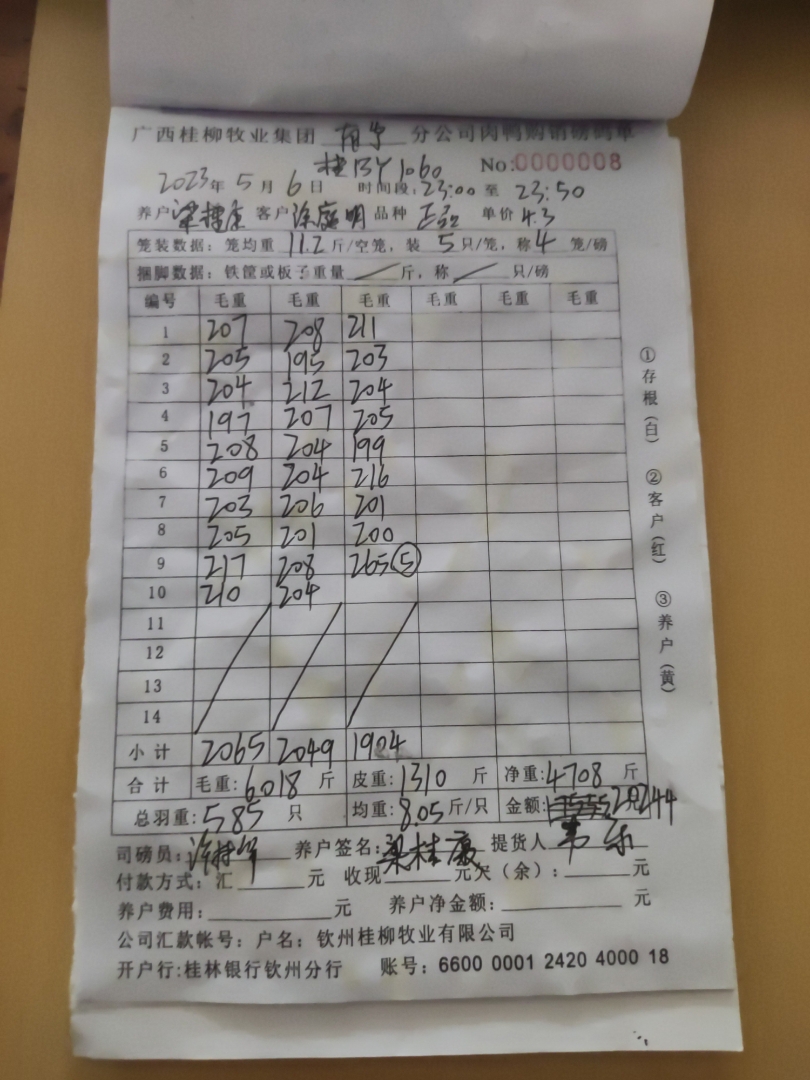 广西桂柳牧业集团 南宁 分公司肉鸭购销磅码单
桂BY1060 No:0000008
2023年5月6日 时间段:23:00至23:50
养户 梁桂康 客户 涂庭明 品种 正品 单价 4.3
笼装数据: 笼均重 11.2 斤/空笼, 装 5 只/笼, 称 4 笼/磅
捆脚数据: 铁筐或板子重量 / 斤, 称 / 只/磅
编号 毛重 毛重 毛重 毛重 毛重 毛重
1 207 208 211
2 205 195 203
3 204 212 204
4 197 207 205
5 208 204 199
6 209 204 216
7 203 206 201
8 205 201 200
9 217 208 265⑤
10 210 204
11
12
13
14
小计 2065 2049 1904
合计 毛重: 6018 斤 皮重: 1310 斤 净重: 4708 斤
总羽重: 585 只 均重: 8.05 斤/只 金额: 20244
司磅员: 养户签名: 梁桂康 提货人
付款方式: 汇 元 收现 元欠(余): 元
养户费用: 元 养户净金额: 元
公司汇款帐号: 户名: 钦州桂柳牧业有限公司
开户行:桂林银行钦州分行 账号: 6600 0001 2420 4000 18
①存根(白) ②客户(红) ③养户(黄)